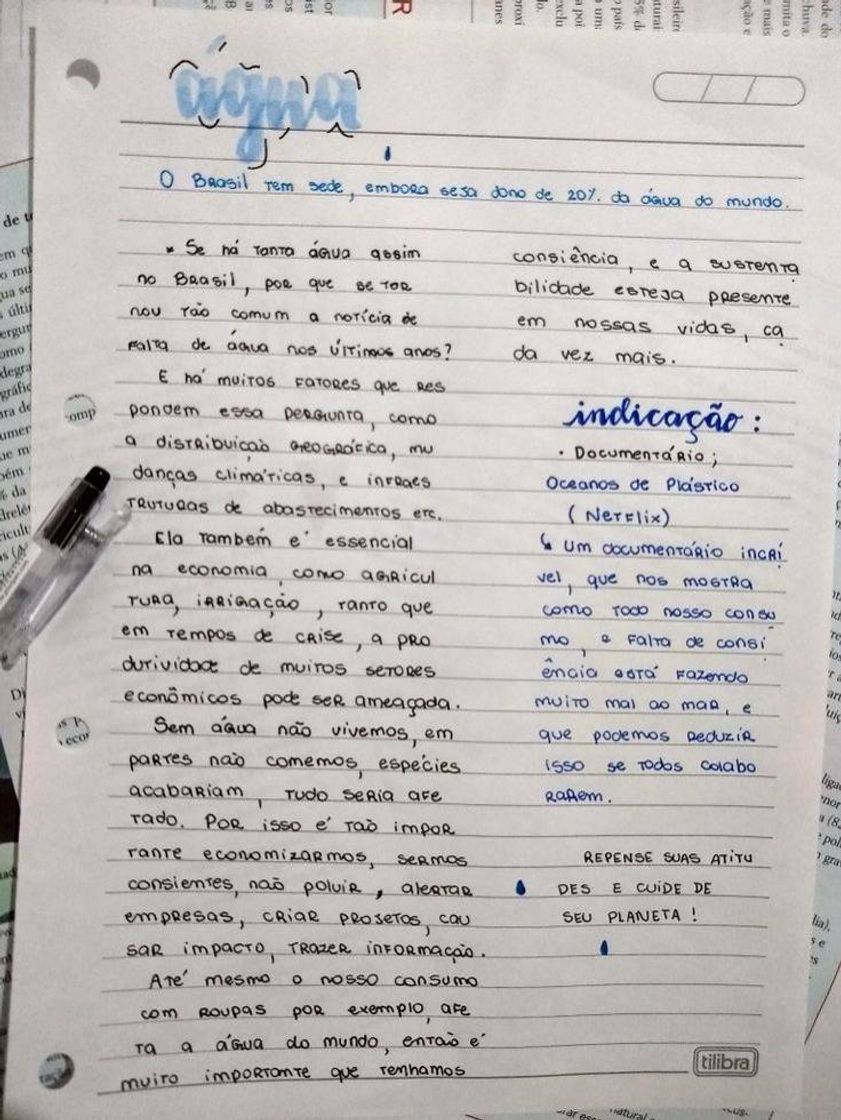 água
O Brasil tem sede, embora seja dono de 20% da água do mundo.
* Se há tanta água assim
no Brasil, por que se tor
nou tão comum a notícia de
falta de água nos últimos anos?
E há muitos fatores que res
pondem essa pergunta, como
a distribuição geográfica, mu
danças climáticas, e infraes
truturas de abastecimentos etc.
Ela também é essencial
na economia, como agricul
tura, irrigação, tanto que
em tempos de crise, a pro
dutividade de muitos setores
econômicos pode ser ameaçada.
Sem água não vivemos, em
partes não comemos, espécies
acabariam, tudo seria afe
tado. Por isso é tão impor
tante economizarmos, sermos
consientes, não poluir, alertar
empresas, criar projetos, cau
sar impacto, trazer informação.
Até mesmo o nosso consumo
com roupas por exemplo, afe
ta a água do mundo, então é
muito importante que tenhamos
consiência, e a sustenta
bilidade esteja presente
em nossas vidas, ca
da vez mais.
indicação:
• Documentário;
Oceanos de Plástico
(Netflix)
↳ Um documentário incrí
vel, que nos mostra
como todo nosso consu
mo, e falta de consi
ência está fazendo
muito mal ao mar, e
que podemos reduzir
isso se todos colabo
rarem.
REPENSE SUAS ATITU
DES E CUIDE DE
SEU PLANETA!
tilibra